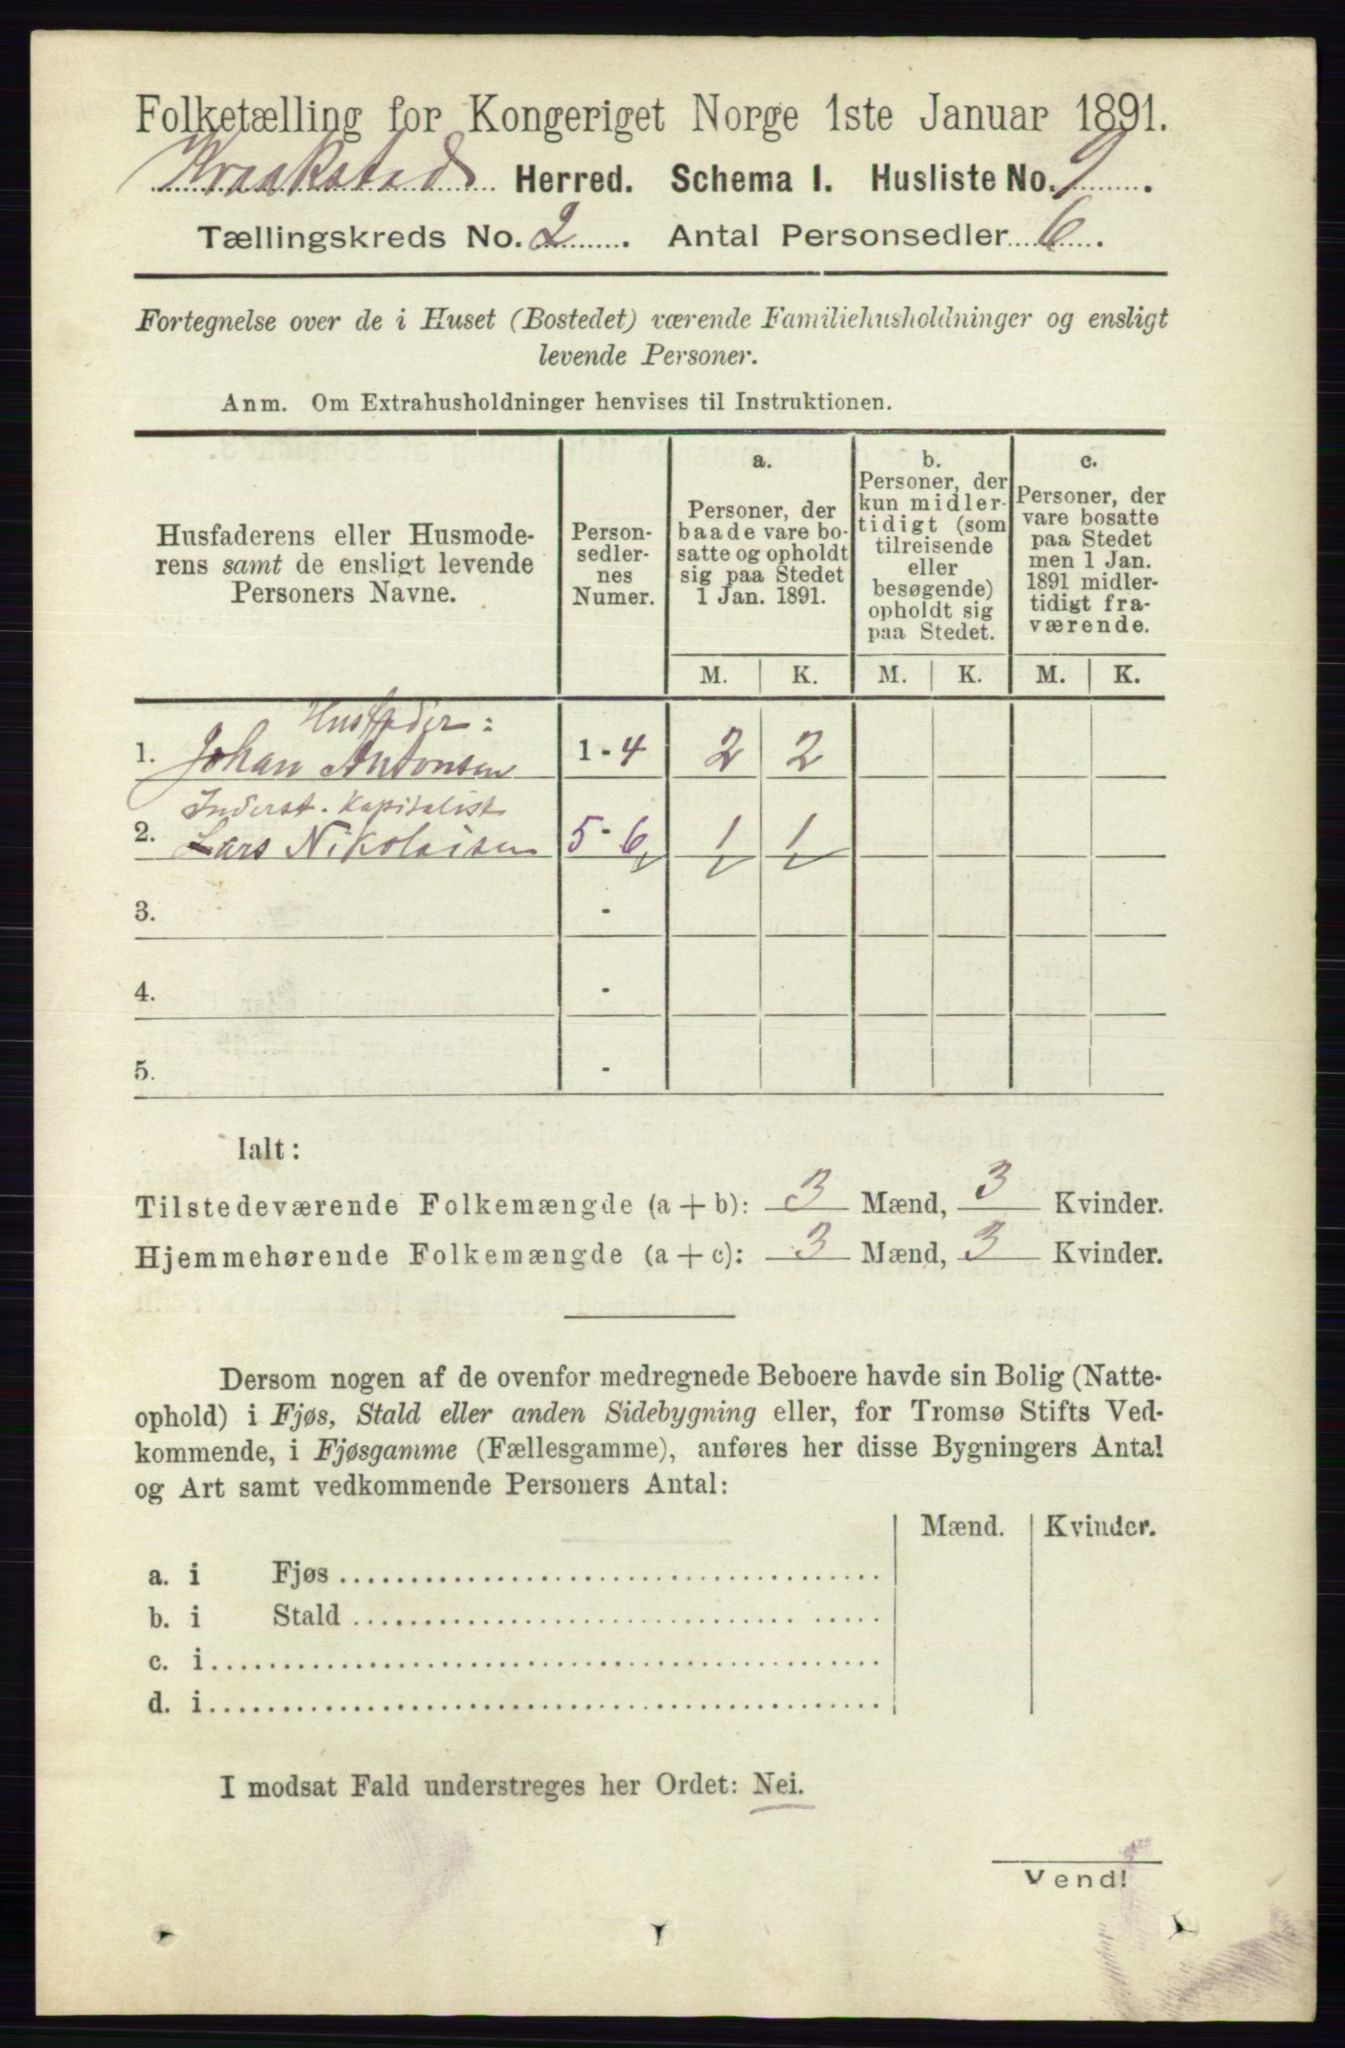 Folketælling for Kongeriget Norge 1ste Januar 1891.
Kraakstad Herred. Schema I. Husliste No. 9.
Tællingskreds No. 2. Antal Personsedler 6.
Fortegnelse over de i Huset (Bostedet) værende Familiehusholdninger og ensligt
levende Personer.
Anm. Om Extrahusholdninger henvises til Instruktionen.
Husfaderens eller Husmode-
rens samt de ensligt levende
Personers Navne.
Person-
sedler-
nes
Numer.
a.
Personer, der
baade vare bo-
satte og opholdt
sig paa Stedet
1 Jan. 1891.
b.
Personer, der
kun midler-
tidigt (som
tilreisende
eller
besøgende)
opholdt sig
paa Stedet.
c.
Personer, der
vare bosatte
paa Stedet
men 1 Jan.
1891 midler-
tidigt fra-
værende.
M. K. M. K. M. K.
Husfader:
1. Johan Antonsen 1-4 2 2
Inderst. Kapitalist
2. Lars Nikolaisen 5-6 1 1
3. -
4. -
5. -
Ialt:
Tilstedeværende Folkemængde (a+b): 3 Mænd, 3 Kvinder.
Hjemmehørende Folkemængde (a+c): 3 Mænd, 3 Kvinder.
Dersom nogen af de ovenfor medregnede Beboere havde sin Bolig (Natte-
ophold) i Fjøs, Stald eller anden Sidebygning eller, for Tromsø Stifts Ved-
kommende, i Fjøsgamme (Fællesgamme), anføres her disse Bygningers Antal
og Art samt vedkommende Personers Antal:
Mænd. Kvinder.
a. i Fjøs
b. i Stald
c. i
d. i
I modsat Fald understreges her Ordet: Nei.
Vend!